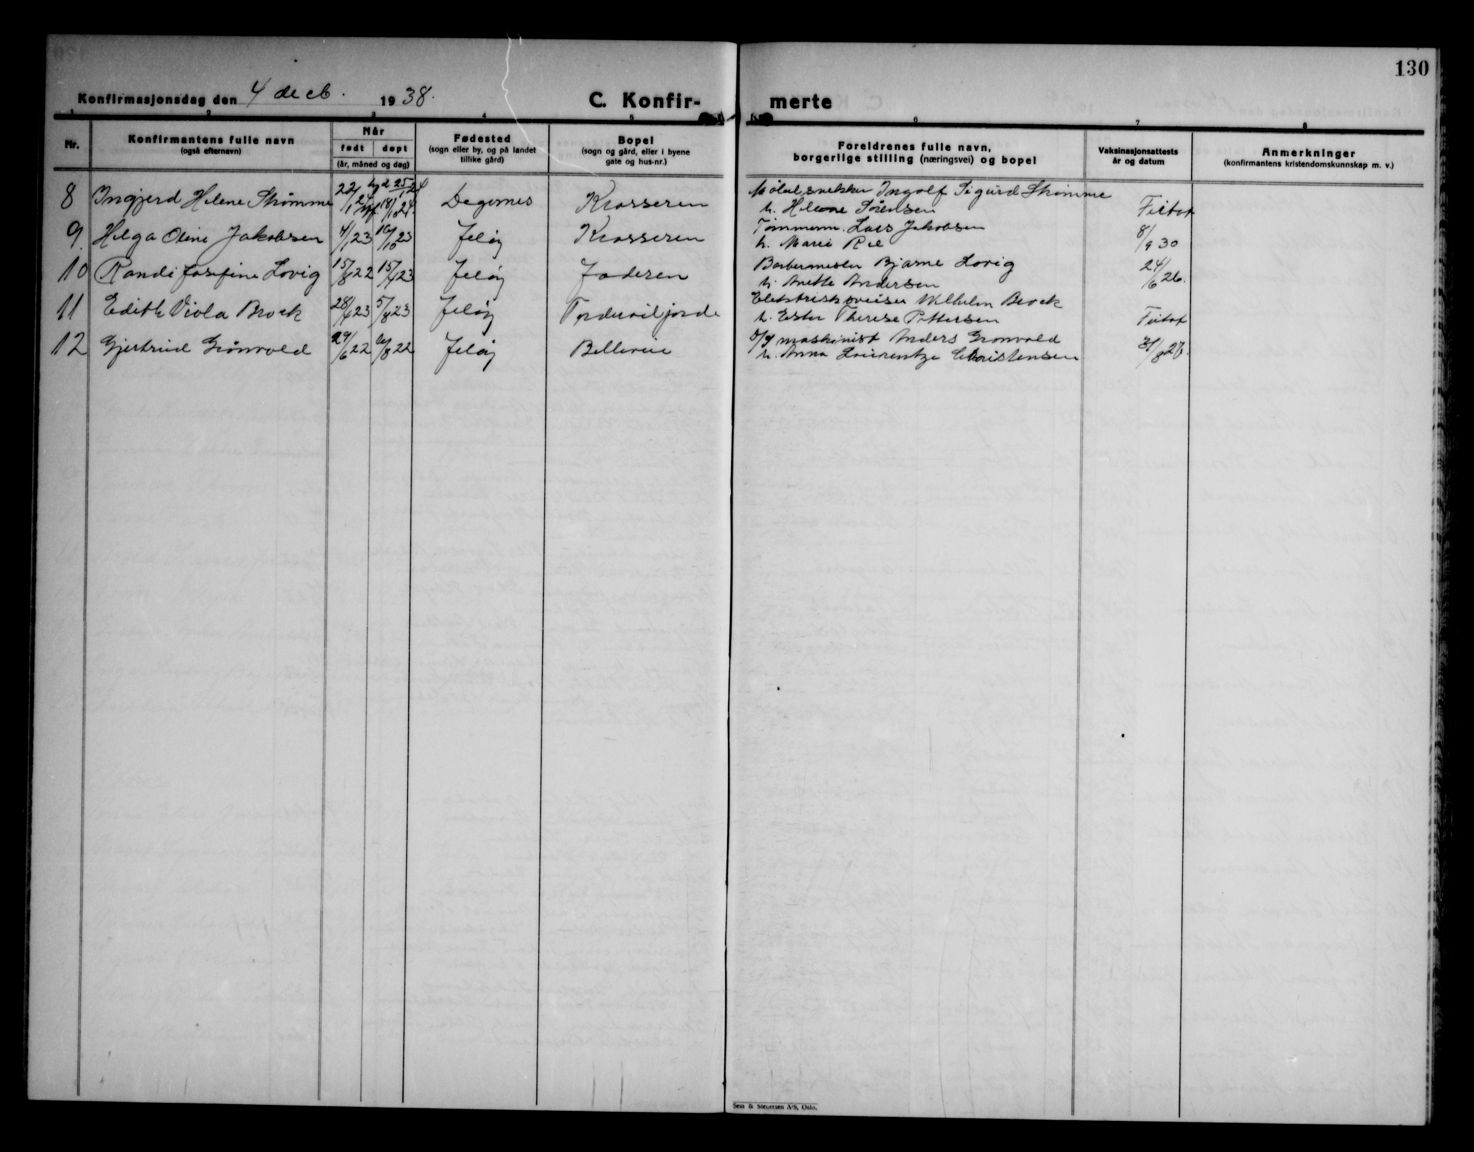 130
Konfirmasjonsdag den 4 decb. 1938.
C. Konfir-
merte
1 2 3 4 5 6 7 8
Nr.
Konfirmantens fulle navn
(også efternavn)
Når
født døpt
(år, måned og dag)
Fødested
(sogn eller by, og på landet
tillike gård)
Bopel
(sogn og gård, eller i byene
gate og hus-nr.)
Foreldrenes fulle navn,
borgerlige stilling (næringsvei) og bopel
Vaksinasjonsattests
år og datum
Anmerkninger
(konfirmantens kristendomskunnskap m. v.)
8 Ingjerd Helene Strømme 22/1 24 Degernes Krosseren
Ingolf Sigurd Strømme
h. Helene Sørensen
9. Helga Oline Jakobsen 4/ 23 23 Jeløy Krosseren
Tømmerm. Lars Jakobsen 8/9 30
h. Marie
10 Randi Josefine Lovig 15/8 22 15/ 23 Jeløy
Barbermester Bjarne Lovig 24/6 26.
h. Anette Andersen
11 Edith Viola Brock 28/ 23 5/8 23 Jeløy
Elektrisksveiser Wilhelm Brock
h. Ester Therese Pettersen
12 Gjertrud Grønvold 29/6 22 6/8 22 Jeløy Bellevue
maskinist Anders Grønvold 31/8 27.
h. Anna Christensen
Sem & Stenersen A/S, Oslo.